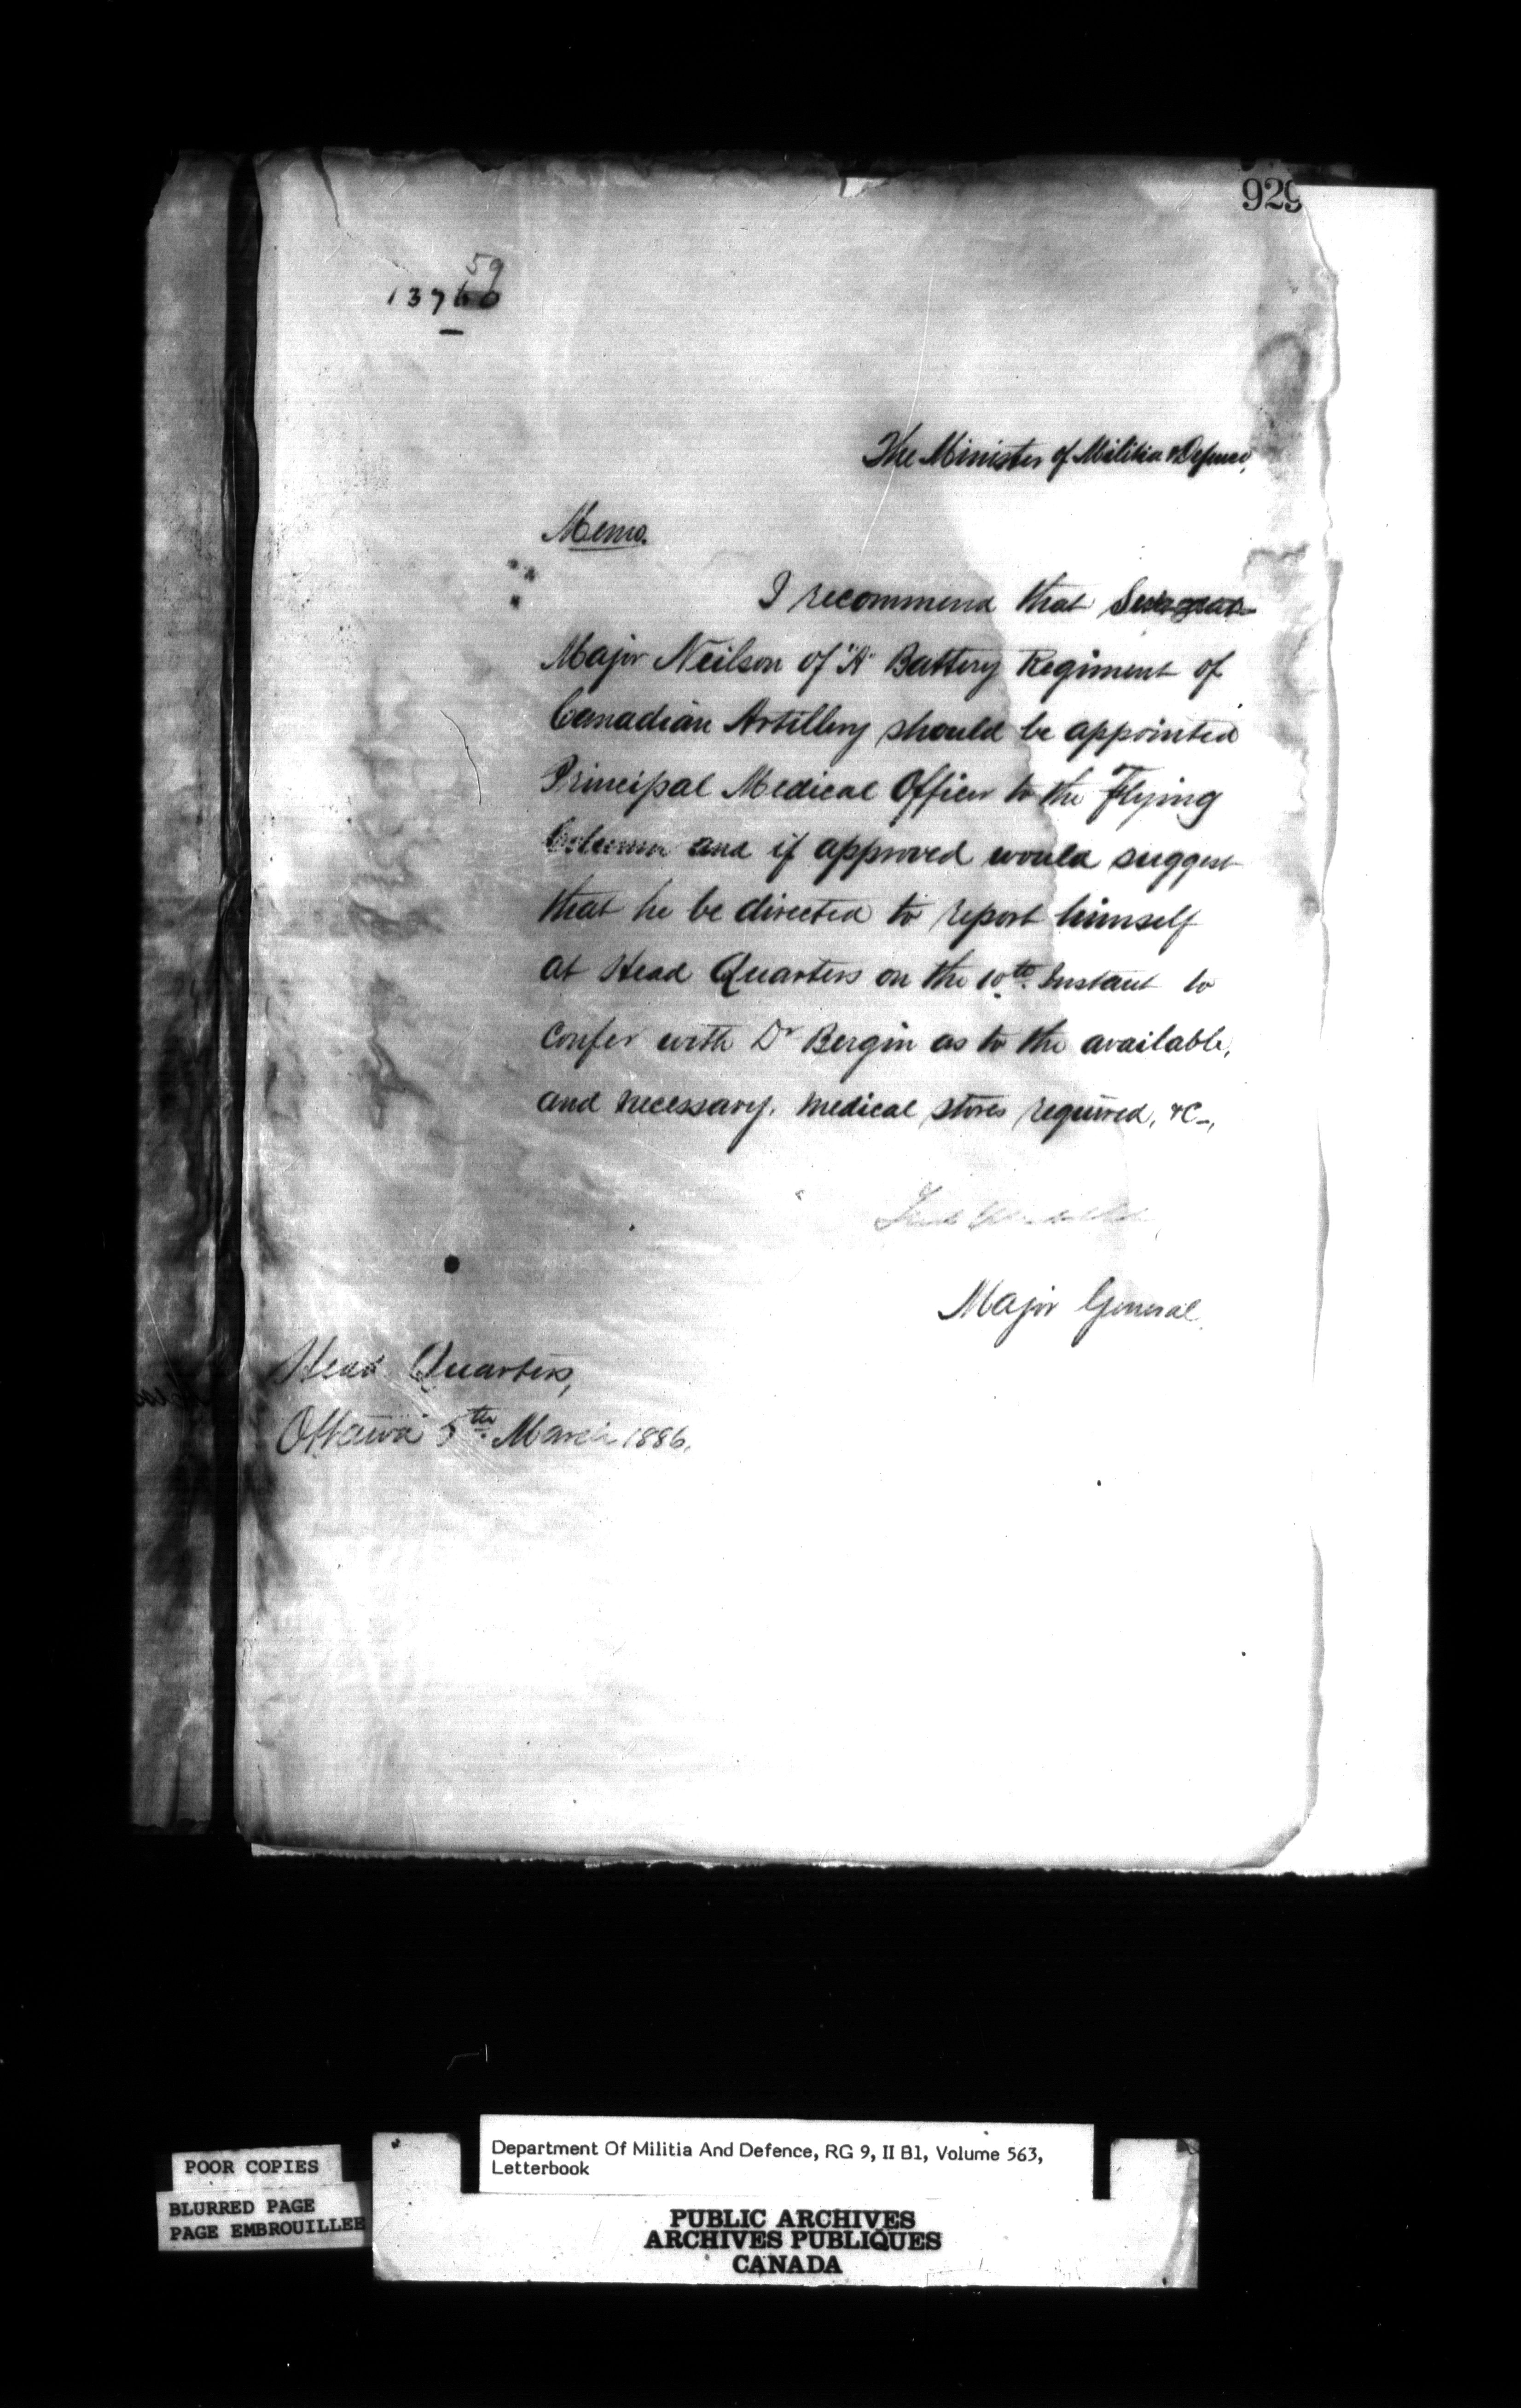 929
59
13760
The Minister of Militia & Defence,
Memo.
I recommend that Surgeon
Major Neilson of "A" Battery Regiment of
Canadian Artillery should be appointed
Principal Medical Officer to the Flying
Column and if approved would suggest
that he be directed to report himself
at Head Quarters on the 10th. Instant to
confer with Dr Bergin as to the available,
and necessary, medical stores required, &c-,
Major General
Head Quarters,
Ottawa 5th. March 1886.
POOR COPIES
BLURRED PAGE
PAGE EMBROUILLEE
Department Of Militia And Defence, RG 9, II B1, Volume 563,
Letterbook
PUBLIC ARCHIVES
ARCHIVES PUBLIQUES
CANADA